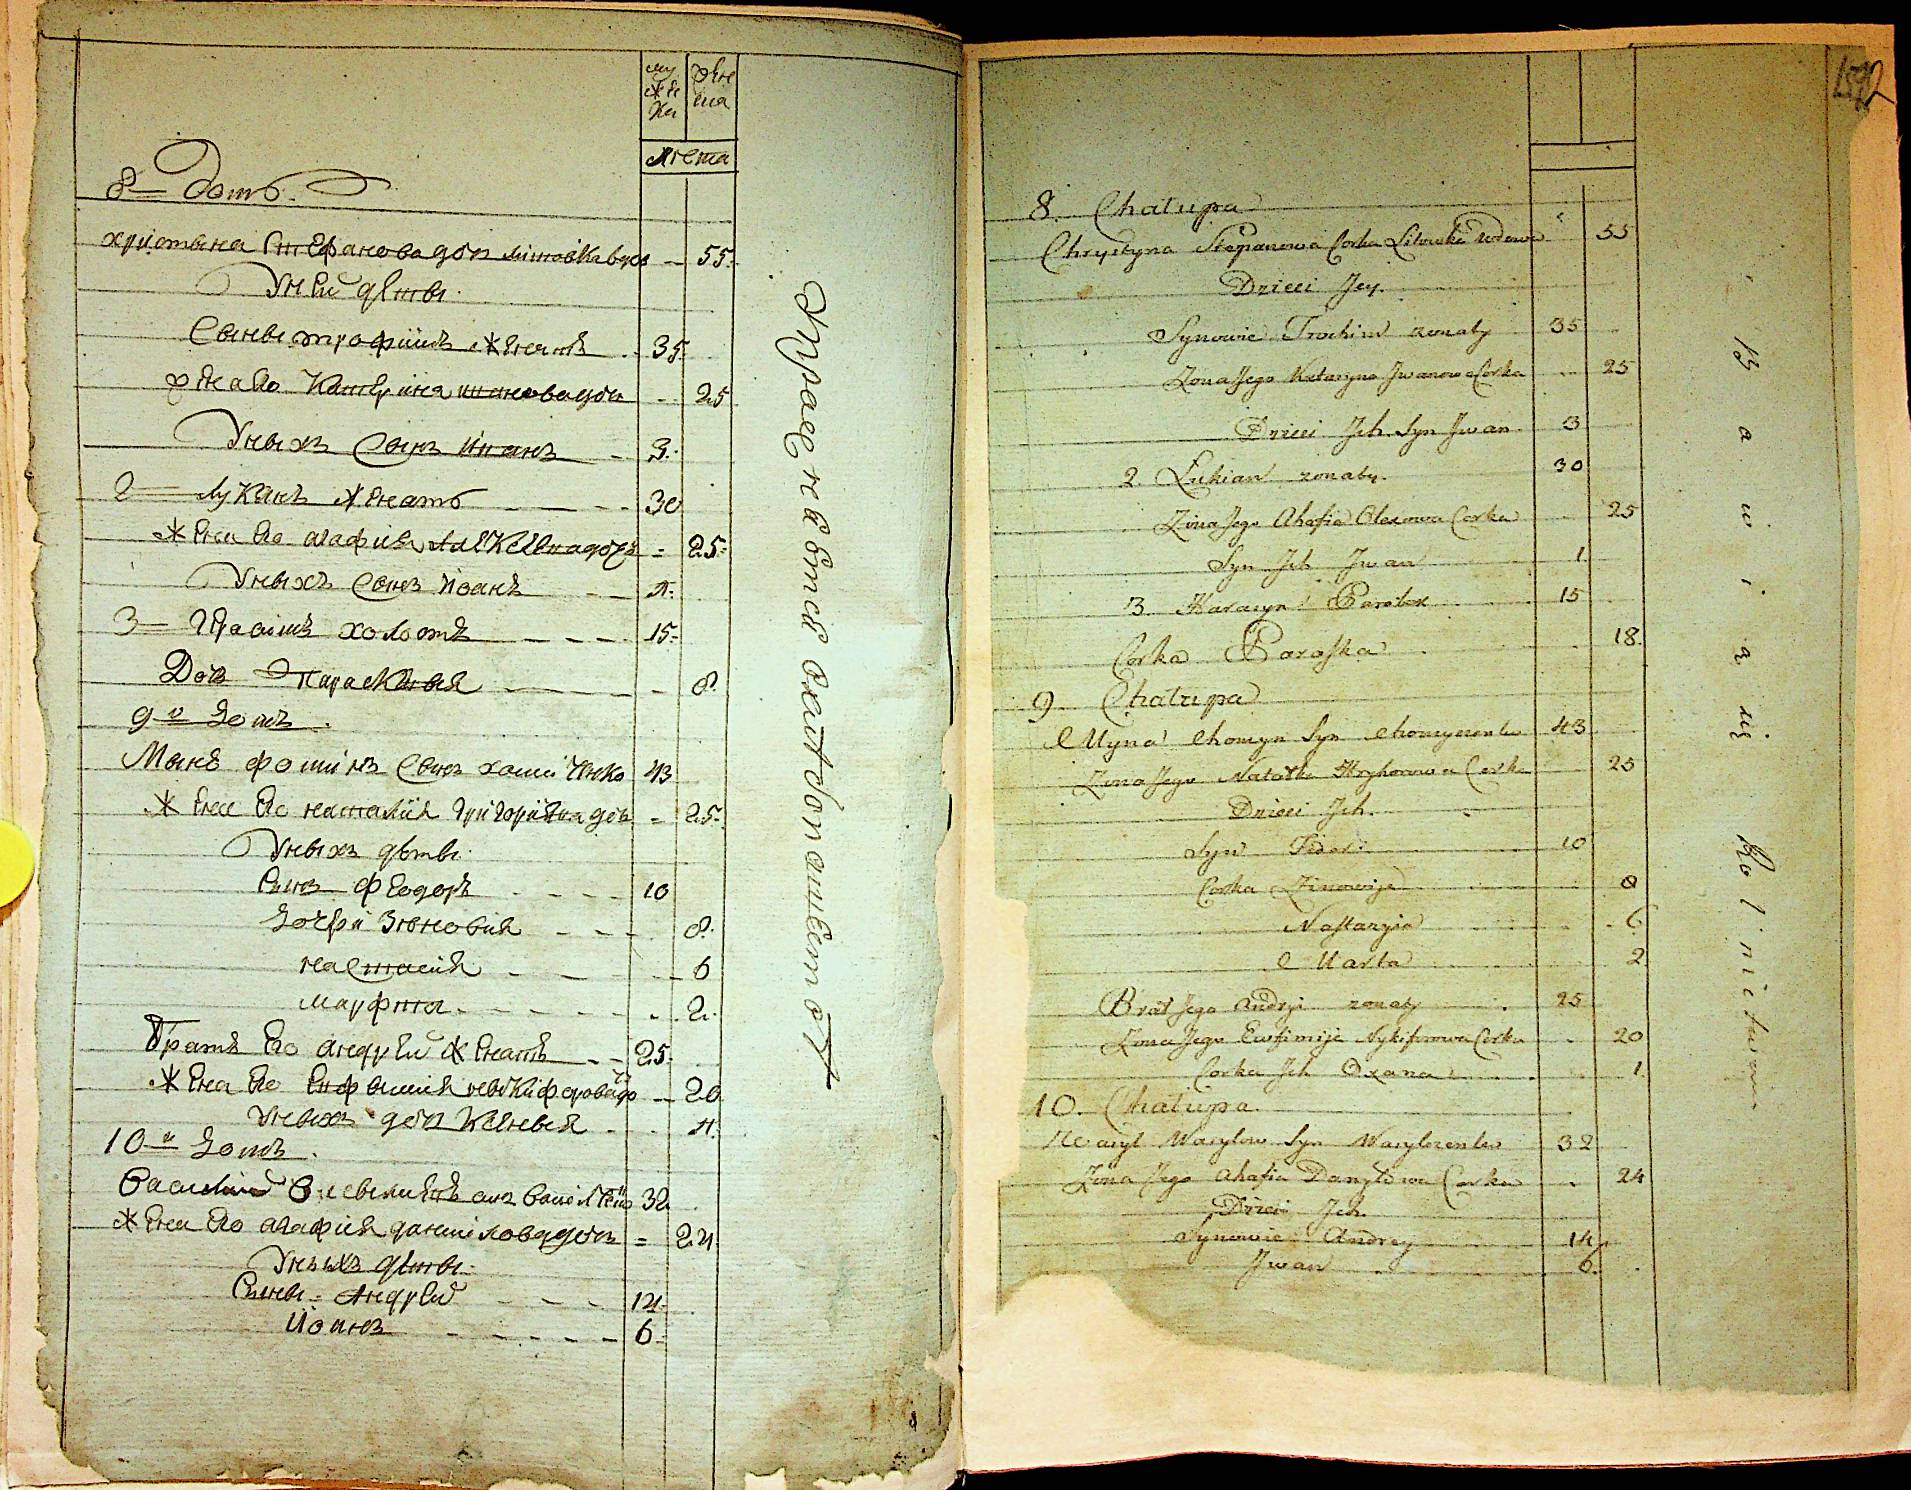 мужеска
женска
лета
8 домъ.
христына Стефанова дочь литовка вдова 55
У ней дети
Сыны трофимъ женатъ 35
жена его Катерина иванова дочь 25
У нихъ Сынъ иванъ 3
2 лукянъ женатъ 30
жена его агафия дочь 25
У нихъ Сынъ иванъ 1
3 Герасимъ холостъ 15
Дочь Параскивия 8
9й домъ
Мина фоминъ Сынъ хоменко 43
жена его наталия григориева дочь 25
У нихъ дети
Сынъ феодоръ 10
дочери Зиновия 8
настасия 6
марфта 2
Братъ его андрей женатъ 25
жена его Ефимия никифорова дочь 20
У нихъ дочь 1
10й домъ
Василий сынъ 32
жена его агафия данилова дочь 24
У нихъ дети
Сыны Андрей 14
иванъ 6
Упражняется в хлебопашестве
8. Chałupa
Chrystyna Stepanowa Corka Litowka wdowa 55
Dzieci Jey.
Synowie Trochim zonaty 35
Zona Jego Katarzyna Jwanowa Corka 25
Dzieci Jch Syn Jwan 3
2. Lukian zonaty. 30
Zona Jego Ahafia Olexowa Corka 25
Syn Jch Jwan 1
3. Harasym Parobek 15
Corka Paraska 18.
9. Chałupa
Myna Chomyn Syn Chomyczenko 43
Zona Jego Natalka Hryhorowa Corka 25
Dzieci Jch.
Syn Fedor 10
Corka Zinowija 8
Nastazyia 6
Marta 2.
Brat Jego Andrzy zonaty 25
Zona Jego Ewfimija Nykiforowa Corka 20
Corka Jch Oxana 1
10. Chałupa
Wasyl Wasylow Syn Wasylczenko 32
Zona Jego Ahafia Danyłowa Corka 24
Dzieci Jch
Synowie Andrey 14
Jwan 6.
Bawią się Rolnictwem